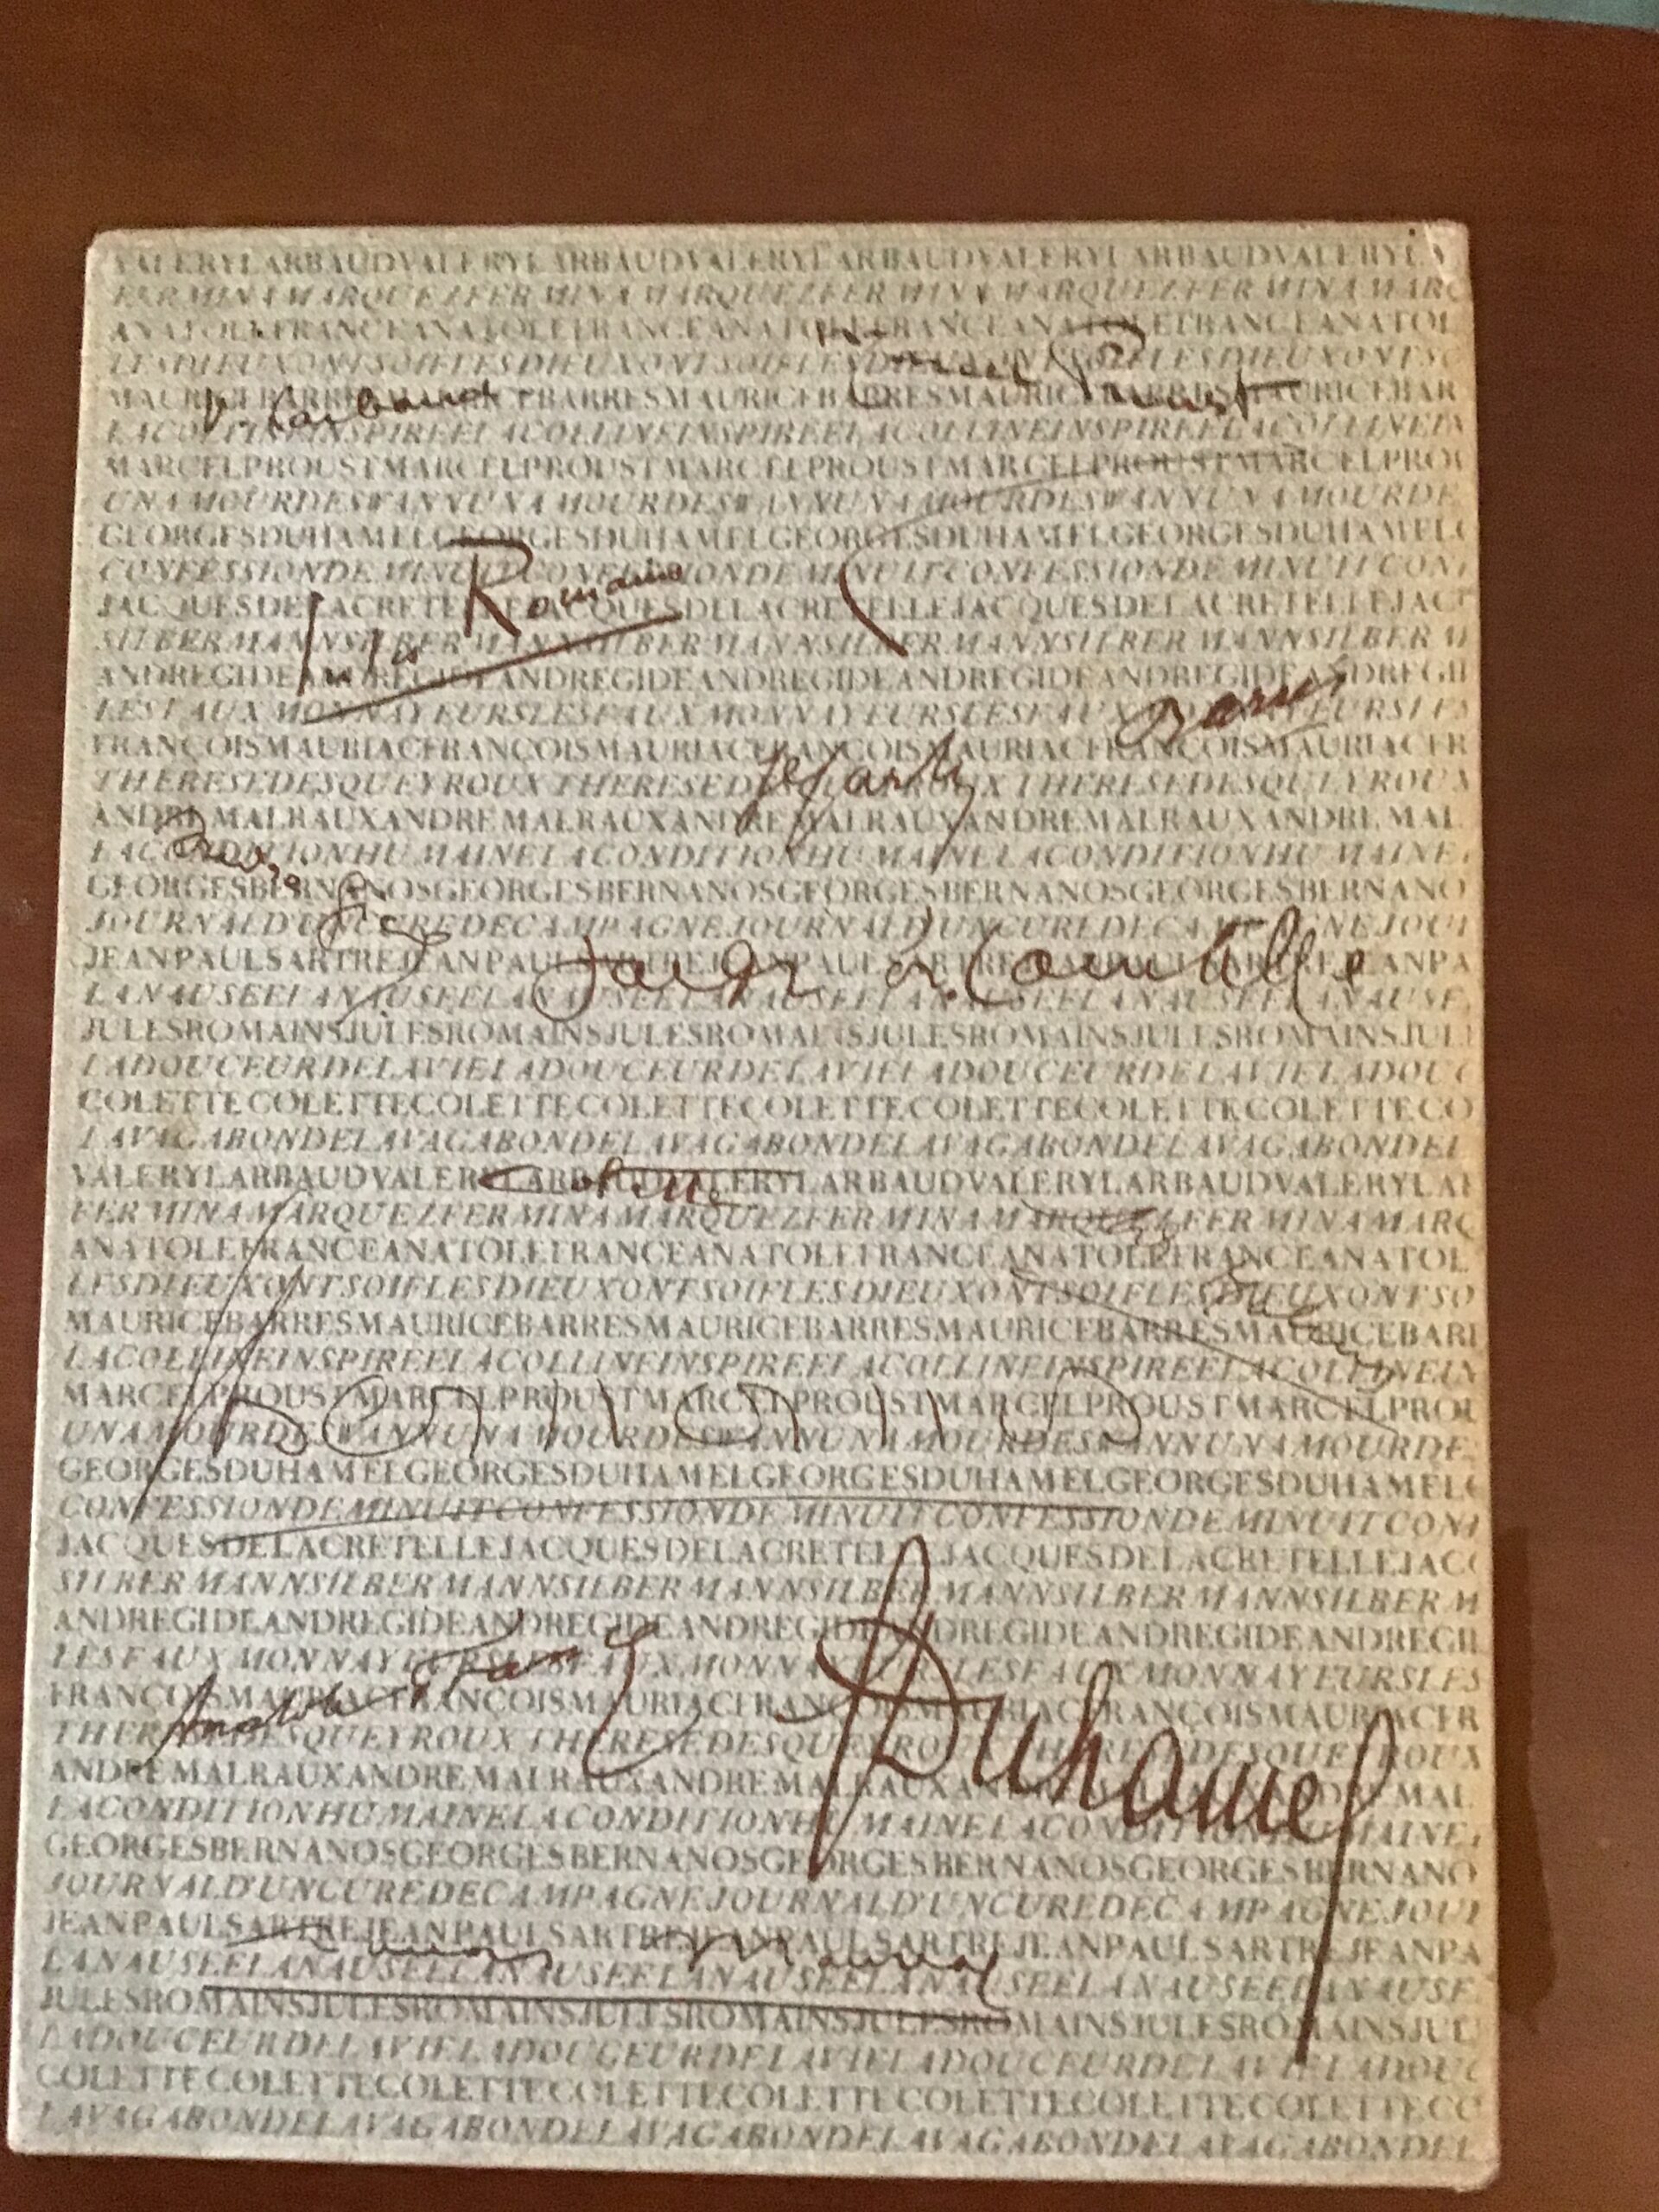 VALERYLARBAUDVALERYLARBAUDVALERYLARBAUDVALERYLARBAUDVALERYLA
FERMINAMARQUEZFERMINAMARQUEZFERMINAMARQUEZFERMINAMARQ
ANATOLEFRANCEANATOLEFRANCEANATOLEFRANCEANATOLEFRANCEANATOL
LESDIEUXONTSOIFLESDIEUXONTSOIFLESDIEUXONTSOIFLESDIEUXONTSO
Marcel Proust
V. Larbaud
MAURICEBARRESMAURICEBARRESMAURICEBARRESMAURICEBARRESMAURICEBAR
LACOLLINEINSPIREELACOLLINEINSPIREELACOLLINEINSPIREELACOLLINEIN
MARCELPROUSTMARCELPROUSTMARCELPROUSTMARCELPROUSTMARCELPROU
UNAMOURDESWANNUNAMOURDESWANNUNAMOURDESWANNUNAMOURDE
GEORGESDUHAMELGEORGESDUHAMELGEORGESDUHAMELGEORGESDUHAMELG
CONFESSIONDEMINUITCONFESSIONDEMINUITCONFESSIONDEMINUITCONF
Jules Romains
JACQUESDELACRETELLEJACQUESDELACRETELLEJACQUESDELACRETELLEJACQ
SILBERMANNSILBERMANNSILBERMANNSILBERMANNSILBERMANNSILBERM
ANDREGIDEANDREGIDEANDREGIDEANDREGIDEANDREGIDEANDREGIDEANDREGID
LESFAUXMONNAYEURSLESFAUXMONNAYEURSLESFAUXMONNAYEURSLES
Barrès
FRANÇOISMAURIACFRANÇOISMAURIACFRANÇOISMAURIACFRANÇOISMAURIACFR
THERESEDESQUEYROUXTHERESEDESQUEYROUXTHERESEDESQUEYROUX
JPSartre
ANDREMALRAUXANDREMALRAUXANDREMALRAUXANDREMALRAUXANDREMAL
LACONDITIONHUMAINELACONDITIONHUMAINELACONDITIONHUMAINE
André Gide
GEORGESBERNANOSGEORGESBERNANOSGEORGESBERNANOSGEORGESBERNANO
JOURNALD'UNCUREDECAMPAGNEJOURNALD'UNCUREDECAMPAGNEJOUR
JEANPAULSARTREJEANPAULSARTREJEANPAULSARTREJEANPAULSARTREJEANPA
Jacques de Lacretelle
LANAUSEELANAUSEELANAUSEELANAUSEELANAUSEELANAUSEELANAUSE
JULESROMAINSJULESROMAINSJULESROMAINSJULESROMAINSJULESROMAINSJUL
LADOUCEURDELAVIELADOUCEURDELAVIELADOUCEURDELAVIELADOUC
COLETTECOLETTECOLETTECOLETTECOLETTECOLETTECOLETTECOLETTECO
LAVAGABONDELAVAGABONDELAVAGABONDELAVAGABONDELAVAGABONDEL
VALERYLARBAUDVALERYLARBAUDVALERYLARBAUDVALERYLARBAUDVALERYLAR
Colette
FERMINAMARQUEZFERMINAMARQUEZFERMINAMARQUEZFERMINAMARQ
ANATOLEFRANCEANATOLEFRANCEANATOLEFRANCEANATOLEFRANCEANATOL
LESDIEUXONTSOIFLESDIEUXONTSOIFLESDIEUXONTSOIFLESDIEUXONTSO
MAURICEBARRESMAURICEBARRESMAURICEBARRESMAURICEBARRESMAURICEBARR
LACOLLINEINSPIREELACOLLINEINSPIREELACOLLINEINSPIREELACOLLINEIN
MARCELPROUSTMARCELPROUSTMARCELPROUSTMARCELPROUSTMARCELPROU
Bernanos
UNAMOURDESWANNUNAMOURDESWANNUNAMOURDESWANNUNAMOURDE
GEORGESDUHAMELGEORGESDUHAMELGEORGESDUHAMELGEORGESDUHAMELG
CONFESSIONDEMINUITCONFESSIONDEMINUITCONFESSIONDEMINUITCONF
JACQUESDELACRETELLEJACQUESDELACRETELLEJACQUESDELACRETELLEJACQ
SILBERMANNSILBERMANNSILBERMANNSILBERMANNSILBERMANNSILBERM
ANDREGIDEANDREGIDEANDREGIDEANDREGIDEANDREGIDEANDREGIDEANDREGID
LESFAUXMONNAYEURSLESFAUXMONNAYEURSLESFAUXMONNAYEURSLES
Anatole France
FRANÇOISMAURIACFRANÇOISMAURIACFRANÇOISMAURIACFRANÇOISMAURIACFR
THERESEDESQUEYROUXTHERESEDESQUEYROUXTHERESEDESQUEYROUX
Duhamel
ANDREMALRAUXANDREMALRAUXANDREMALRAUXANDREMALRAUXANDREMAL
LACONDITIONHUMAINELACONDITIONHUMAINELACONDITIONHUMAINE
GEORGESBERNANOSGEORGESBERNANOSGEORGESBERNANOSGEORGESBERNANO
JOURNALD'UNCUREDECAMPAGNEJOURNALD'UNCUREDECAMPAGNEJOUR
JEANPAULSARTREJEANPAULSARTREJEANPAULSARTREJEANPAULSARTREJEANPA
François Mauriac
LANAUSEELANAUSEELANAUSEELANAUSEELANAUSEELANAUSEELANAUSE
JULESROMAINSJULESROMAINSJULESROMAINSJULESROMAINSJULESROMAINSJUL
LADOUCEURDELAVIELADOUCEURDELAVIELADOUCEURDELAVIELADOUC
COLETTECOLETTECOLETTECOLETTECOLETTECOLETTECOLETTECOLETTECO
LAVAGABONDELAVAGABONDELAVAGABONDELAVAGABONDELAVAGABONDEL